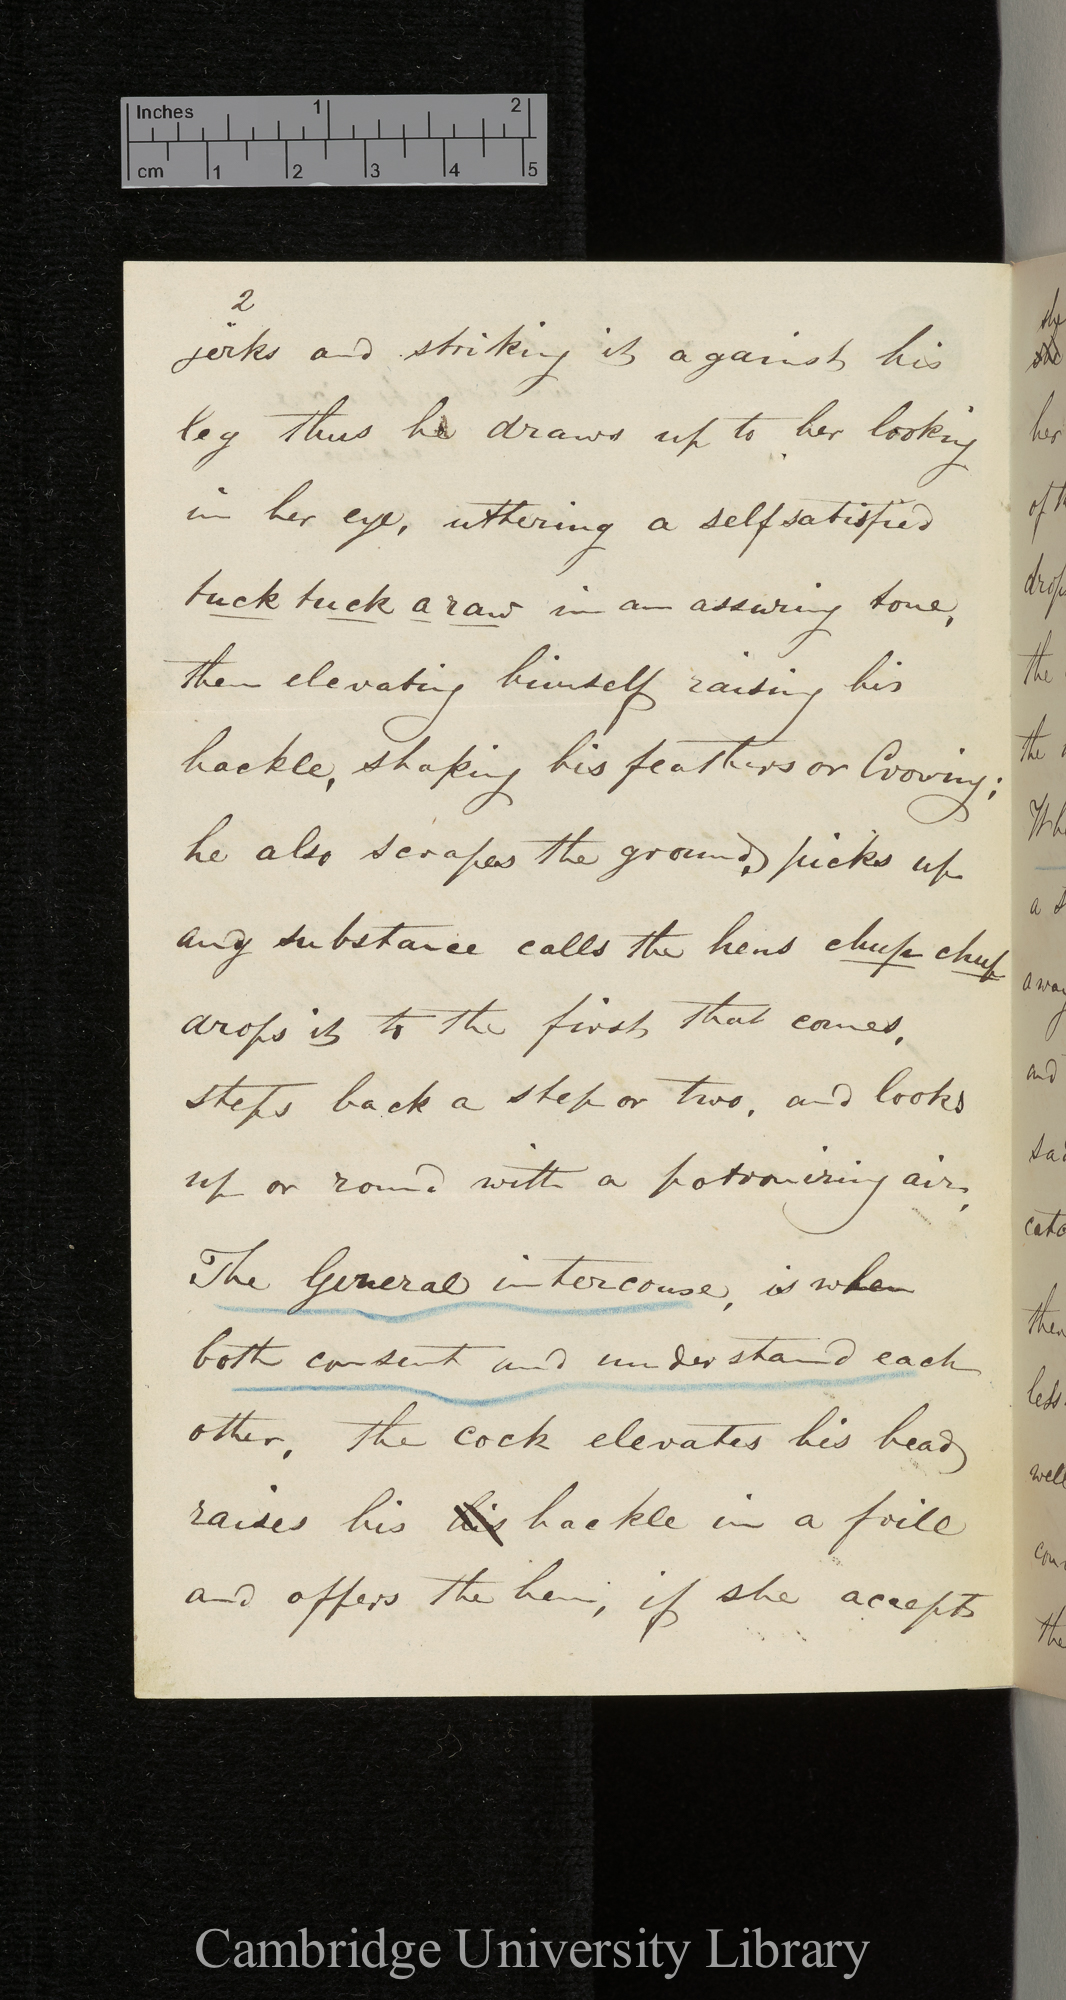 Inches 1 2
cm 1 2 3 4 5
2
jerks and striking it against his
leg thus he draws up to her looking
in her eye, uttering a selfsatisfied
tuck tuck a raw in an assuring tone,
then elevating himself raising his
hackle, shaking his feathers or Crowing;
he also scrapes the ground, picks up
any substance calls the hens chup chup
drops it to the first that comes,
steps back a step or two, and looks
up or round with a patronizing air,
The General intercourse, is when
both consent and understand each
other, the cock elevates his head
raises his his hackle in a frill
and offers the hen, if she accepts
she
she
her
of th
drop
the
the
Whe
a
away
and
sad
catc
then
less
well
con
the
Cambridge University Library